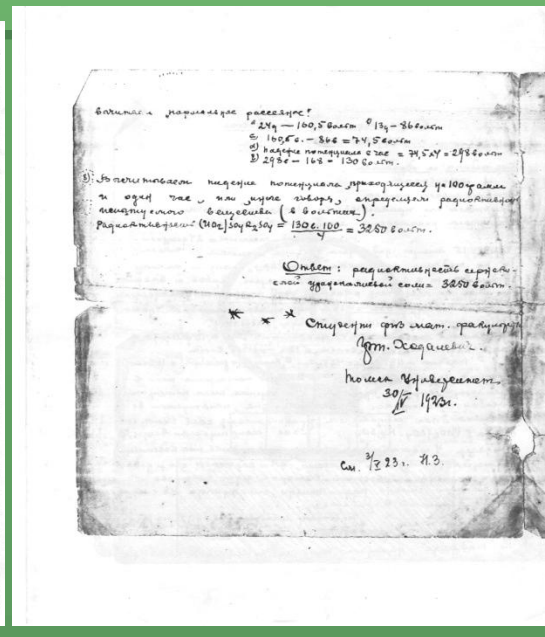 вычитая нормальное рассеяние:
a) 24q — 160,5 вольт b) 13q — 86 вольт
c) 160,5 в. — 86 в = 74,5 вольт
d) падение потенциала в час = 74,5 x 4 = 298 вольт
e) 298 в — 168 = 130 вольт.
8) Высчитываем падение потенциала, приходящееся на 100 грамм
и один час, или, иначе говоря, определяем радиоактивность
вещества (в вольтах).
Радиоактивность (UO2)SO4K2SO4 = 130 в. 100 / 4 = 3250 вольт.
Ответ: радиоактивность
соли = 3250 вольт.
* * *
Студент физ мат. факультета
Ходалевич.
Томск Университет.
30/V 1923 г.
См. 3/X 23 г. Н.З.